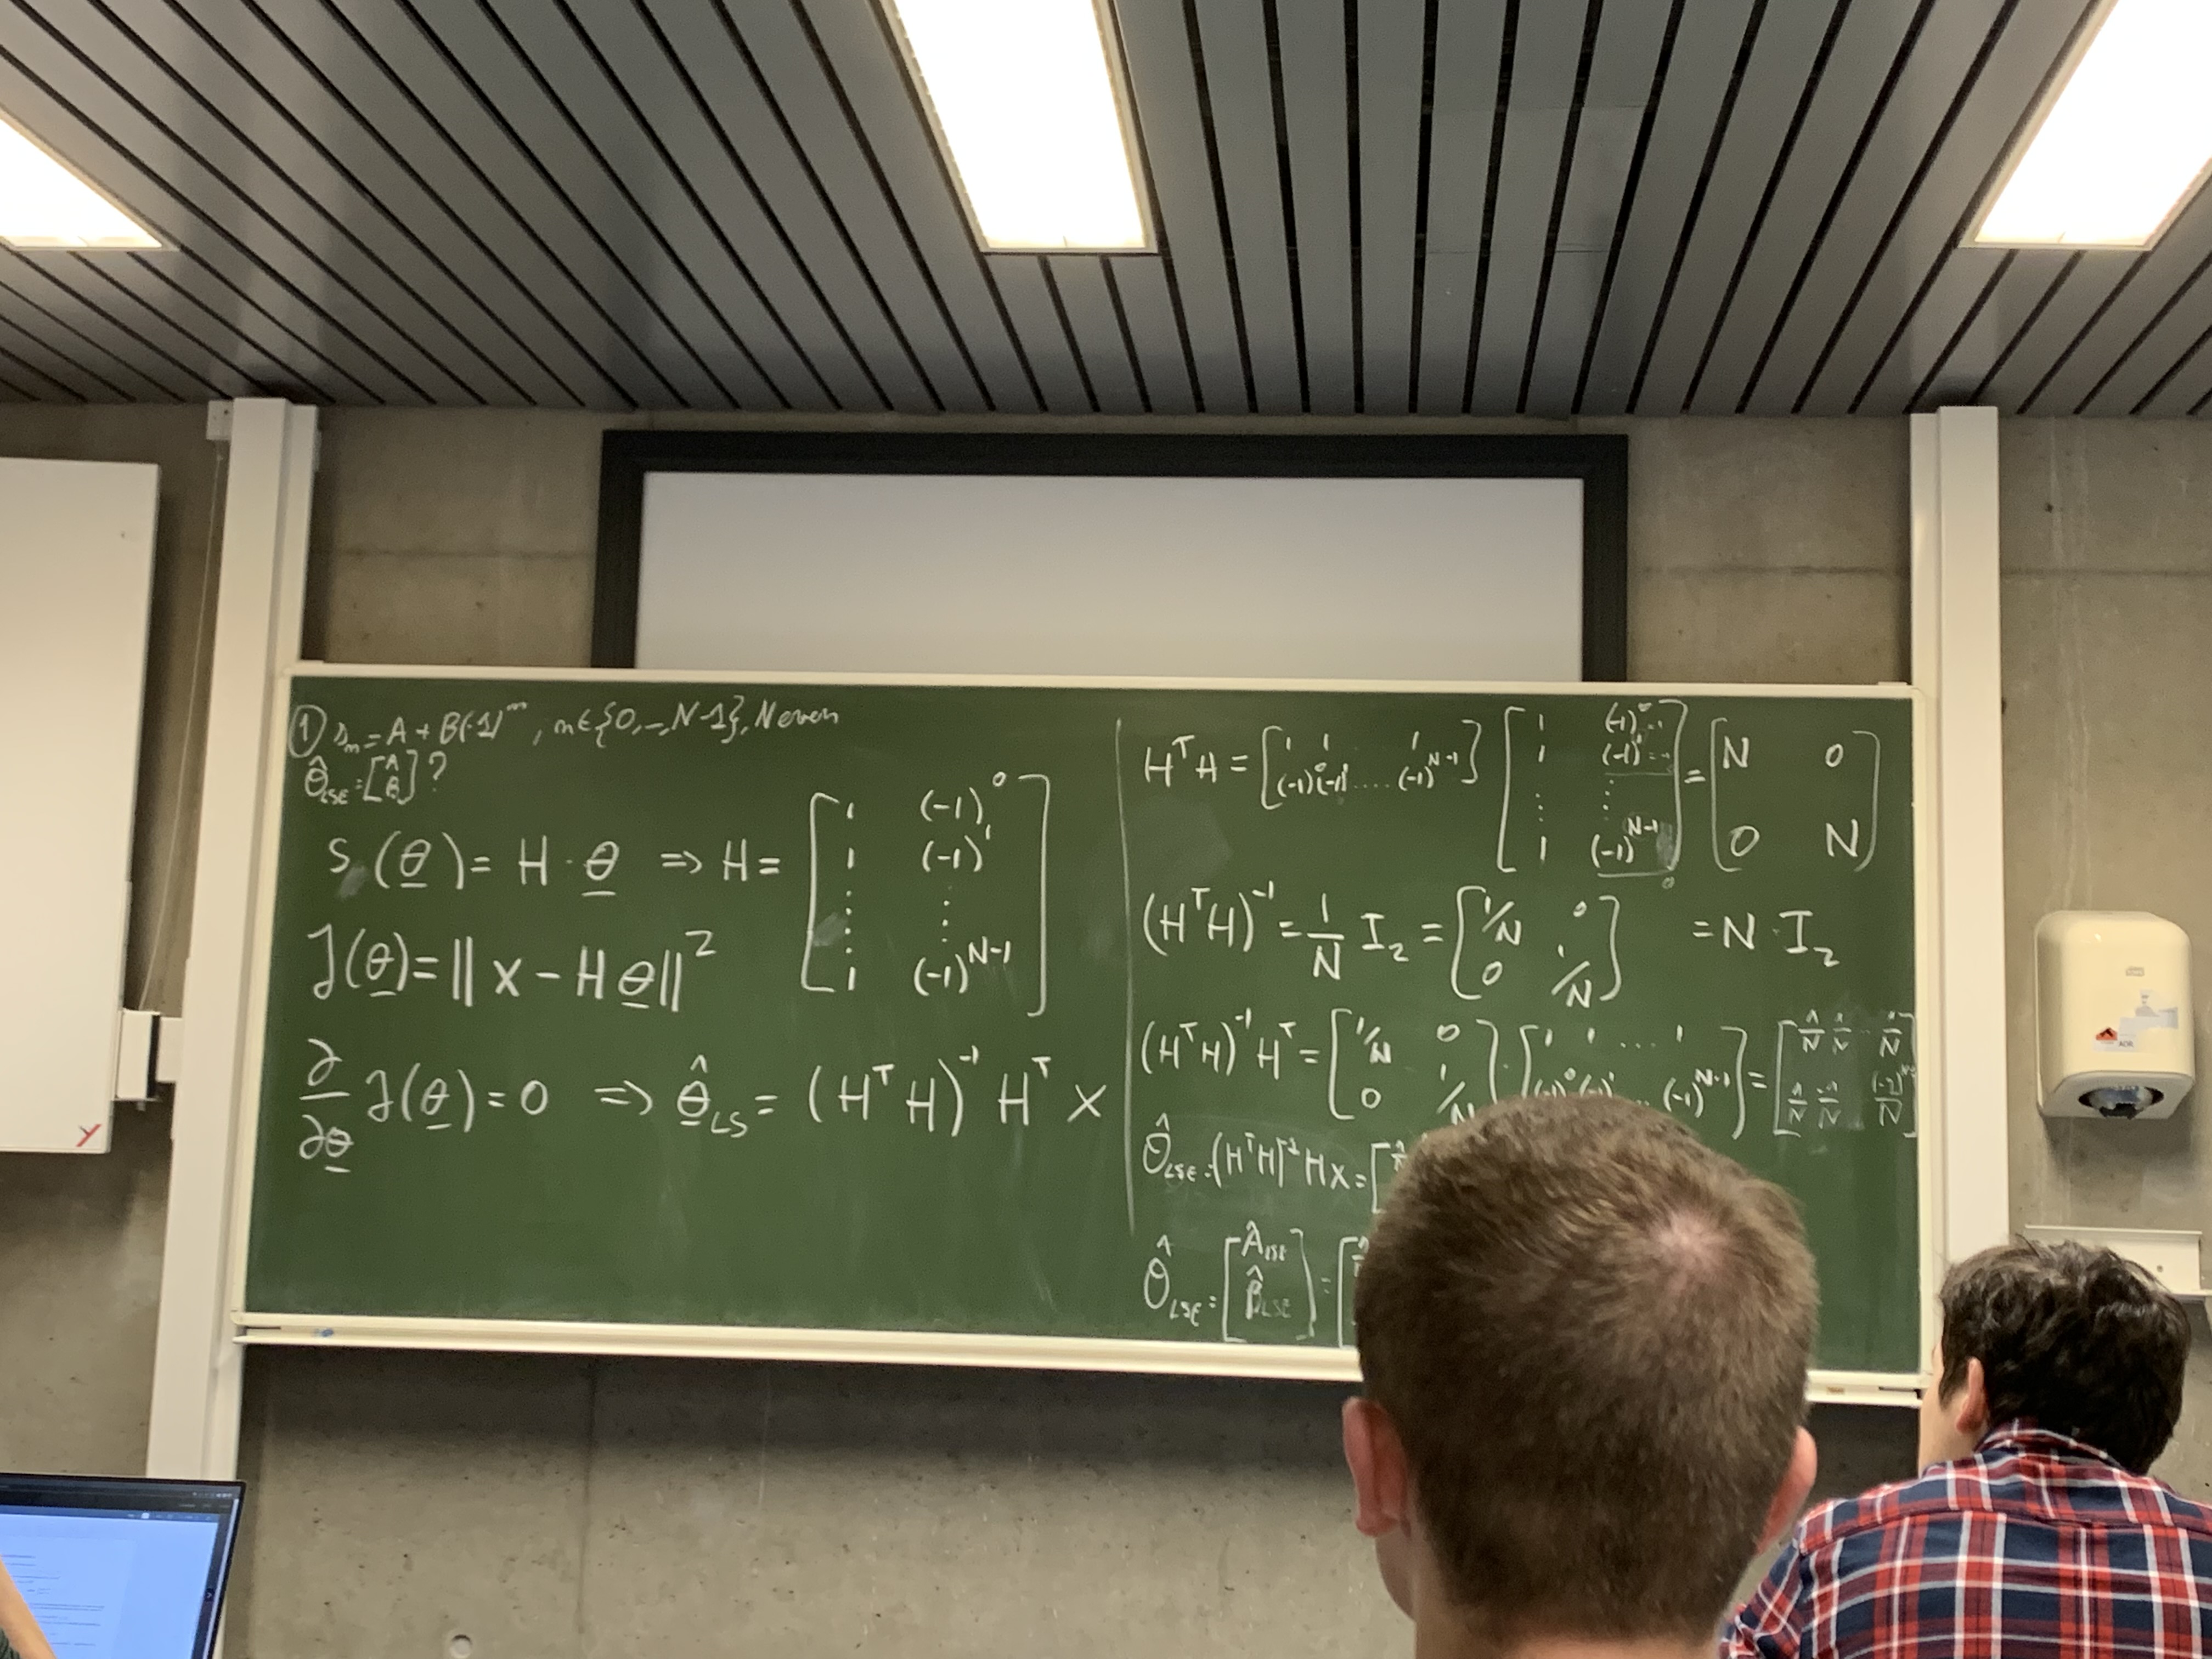 ① s_n = A + B(-1)^n, n∈{0,_,N-1}, N even
θ̂_LSE = [A B] ?
S(θ) = H · θ => H = [1 (-1)^0; 1 (-1)^1; ⋮ ⋮; 1 (-1)^{N-1}]
J(θ) = || x - H θ ||^2
∂/∂θ J(θ) = 0 => θ̂_LS = (H^T H)^{-1} H^T x
H^T H = [1 1 1; (-1)^0 (-1)^1 .... (-1)^{N-1}] [1 (-1)^0; 1 (-1)^1; ⋮ ⋮; 1 (-1)^{N-1}] = [N 0; 0 N]
= N · I_2
(H^T H)^{-1} = 1/N I_2 = [1/N 0; 0 1/N]
(H^T H)^{-1} H^T = [1/N 0; 0 1/N] · [1 1 ... 1; (-1)^0 (-1)^1 ... (-1)^{N-1}] = [1/N 1/N ... 1/N; 1/N -1/N (-1)^{N-1}/N]
θ̂_LSE = (H^T H)^{-1} H x = [
θ̂_LSE = [Â_LSE; B̂_LSE] = [